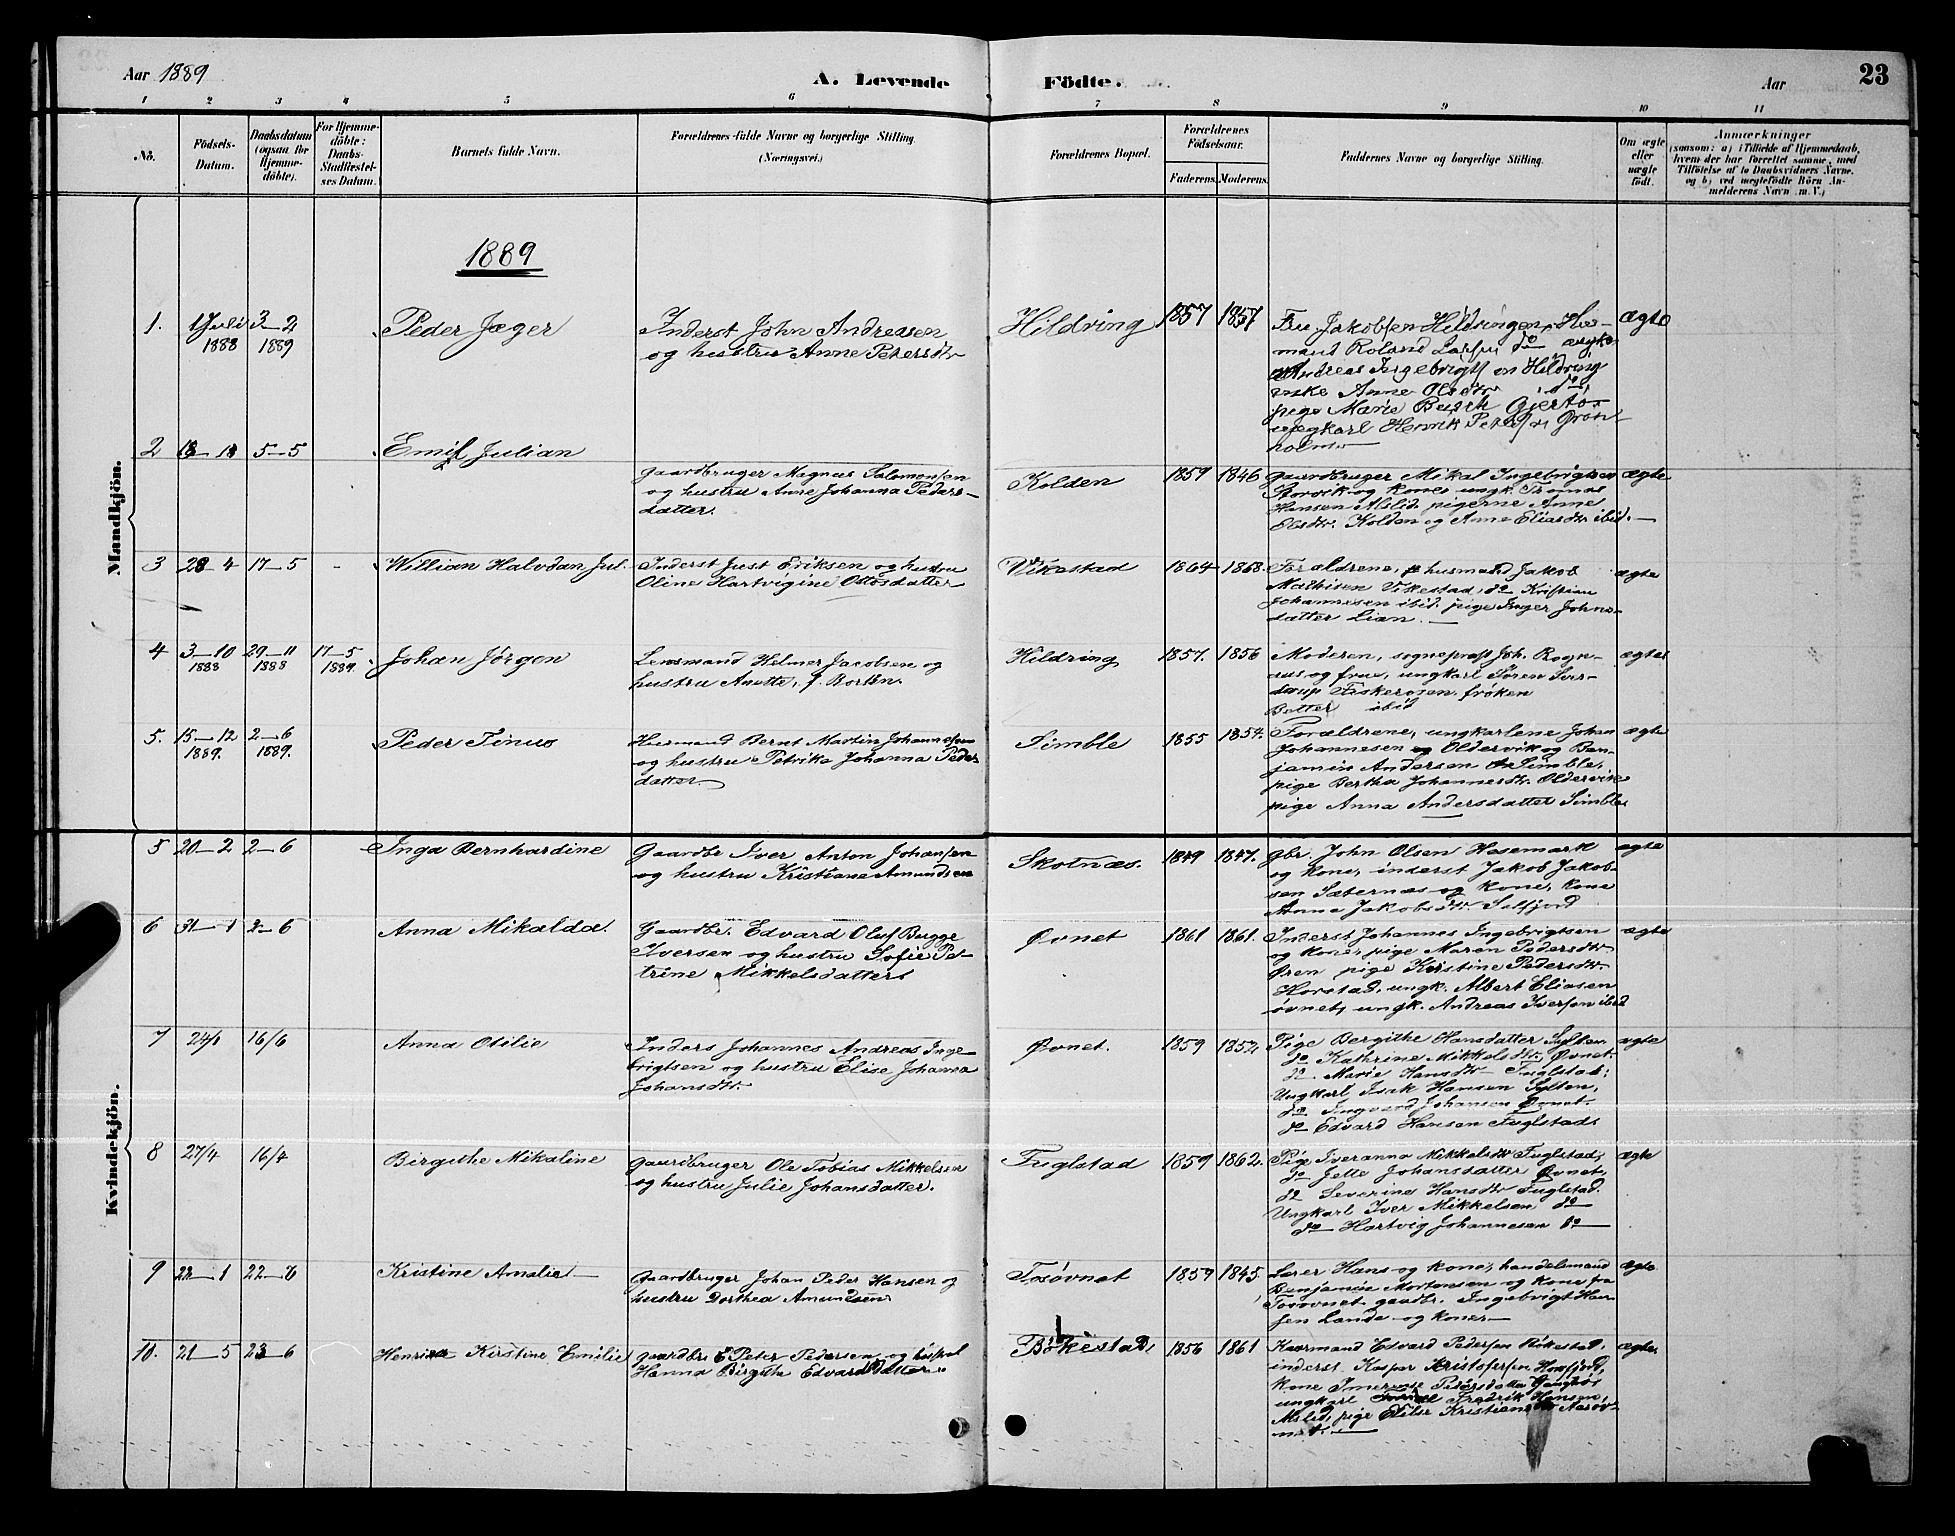 Aar 1889
A. Levende
Födte.
Aar
23
1 2 3 4 5 6 7 8 9 10 11
No.
Födsels-
Datum.
Daabsdatum
(ogsaa for
Hjemme-
döbte).
For Hjemme-
döbte:
Daabs-
Stadfæstel-
ses Datum.
Barnets fulde Navn.
Forældrenes fulde Navne og borgerlige Stilling.
(Næringsvei.)
Forældrenes Bopæl.
Forældrenes
Födselsaar.
Faderens. Moderens.
Faddernes Navne og borgerlige Stilling.
Om ægte
eller
uægte
födt.
Anmærkninger
(saasom: a) i Tilfælde af Hjemmedaab,
hvem der har forrettet samme, med
Tilföielse af to Daabsvidners Navne.
og b) ved uægtefödte Börn An-
melderens Navn m. V.)
Mandkjön.
1889
1.
1 Juli
1888
3-2
1889
Peder Jæger
Inderst John Andreasen
og hustru Anne Petersdtr
Hildring
1857
1857
Fru Jakobsen Hildringen, Hus-
mand Roland Larsen do
Andreas Ingebrigtsen Hildring
enke Anne Olsdtr do
pige Marie Busch
ungkarl Henrik Petersen Grøn-
holm
ægte
2
5-5
Emil Julian
gaardbruger Magnus Salomonsen
og hustru Anne Johanna Peders-
datter.
Kolden
1859
1846
gaardbruger Mikal Ingebrigtsen
Storvik og kone, ungk. Thomas
Hansen Alslid, pigerne Anne
Olsdtr. Kolden og Anne Eliasdtr ibid.
ægte
3
28-4
17-5
-
Willian Halvdan Jul.
Inderst Just Eriksen og hustru
Oline Hartvigine Ottosdatter
Vikestad
1864
1868.
Forældrene, husmand Jakob
Mathisen Vikestad, do Kristian
Johannesen ibid. pige Inger Johns-
datter Lian.
ægte
4
3-10
1888
29-11
1888
17-5
1889.
Johan Jörgen
Lensmand Helmer Jacobsen og
hustru Anette, f. Borten.
Hildring
1857.
1856
Moderen, sognepræst Joh. Rogn-
og frue, ungkarl Sören
Fiskerosen, fröken
ibid
ægte
5.
15-12
1889.
2-6
1889.
Peder Tinus
Husmand Bernt Martin Johannessen
og hustru Petrika Johanna Peders
datter.
Simble
1855
1854.
Forældrene, ungkarlene Johan
Johannesen Oldervik og Ben-
jamin Andersen Simble,
pige Bertha Johannesdtr. Oldervik
pige Anna Andersdatter Simble
ægte
Kvindekjön.
5
20-2
2-6
Inga Bernhardine
Gaardbr Iver Anton Johansen
og hustru Kristiane Amundsen
Skotnæs.
1849
1847.
gbr. John Olsen Hasemark
og kone, inderst Jakob Jakob-
sen Sæternæs og kone, kone
Anna Jakobsdtr. Selfjord
ægte
6
31-1
2-6
Anna Mikalda.
Gaardbr. Edvard Oluf Bugge
Iversen og hustru Sofie Pe-
trine Mikkelsdatter
Øvnet
1861
1861.
Inderst Johannes Ingebrigtsen
og kone, pige Maren Pedersdtr
pige Kristine Pedersdtr.
Horstad, ungk. Albert Eliasen
øvnet, ungk. Andreas Iversen ibid
ægte
7
24/1
16/6
Anna Otilie
Inders Johannes Andreas Inge-
brigtsen og hustru Elise Johanna
Johansdtr.
Øvnet.
1859
1852.
Pige Bergithe Hansdatter Sylten
do Kathrine Mikkelsdtr, Øvnet.
do Marie Hansdtr Fuglstad;
Ungkarl Isak Hansen Sylten,
do Ingvard Johansen Øvnet.
do Edvard Hansen Fuglstad
ægte
8
27/4
16/4
Birgithe Mikaline
gaardbruger Ole Tobias Mikkelsen
og hustru Julie Johansdatter.
Fuglstad
1859
1862.
Pige Iveranna Mikkelsdtr Fuglstad;
do Jette Johansdatter Øvnet,
do Severine Hansdtr Fuglstad.
Ungkarl Iver Mikkelsen do
do Hartvig Johannesen do
ægte
9
22-1
22-6
Kristine Amalie
gaardbruger Johan Peder Hansen og
hustru Dorthea Amundsen
Tosövnet
1859
1845.
Lærer Hans og kone, handelsmand
Benjamin Mortensen og kone fra
Tosovnet gaardbr. Ingebrigt Han-
sen Lande og kone
ægte
10.
21-5
23-6
Henrikke Kirstine Emilie
gaardbr E Peter Pedersen og
Hanna Birgithe Edvardsdatter
Bökestad,
1856
1861
Kaarmand Edvard Pedersen Bökestad,
inderst Kaspar Kristofersen
kone
ungkarl Fredrik Hansen
pige Elise
ægte